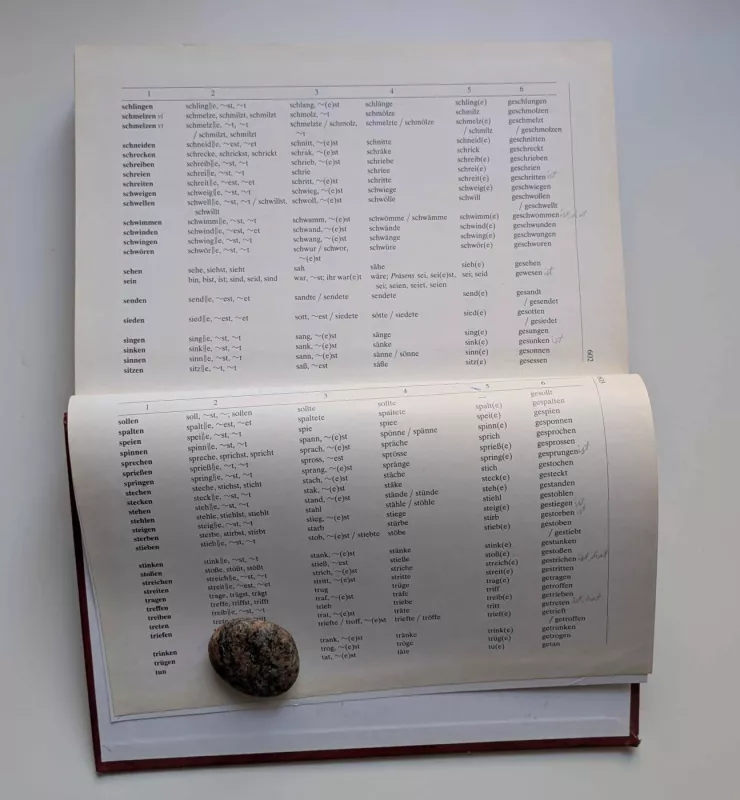 1 2 3 4 5 6
schlingen schling‖e, ~st, ~t schlang, ~(e)st schlänge schling(e) geschlungen
schmelzen vi schmelze, schmilzt, schmilzt schmolz, ~t schmölze schmilz geschmolzen
schmelzen vt schmelz‖e, ~t, ~t schmelzte / schmolz, schmelzte / schmölze schmelz(e) geschmelzt
/ schmilzt, schmilzt ~t / schmilz / geschmolzen
schneiden schneid‖e, ~est, ~et schnitt, ~(e)st schnitte schneid(e) geschnitten
schrecken schrecke, schrickst, schrickt schrak, ~(e)st schräke schrick geschreckt
schreiben schreib‖e, ~st, ~t schrieb, ~(e)st schriebe schreib(e) geschrieben
schreien schrei‖e, ~st, ~t schrie schriee schrei(e) geschrien
schreiten schreit‖e, ~est, ~et schritt, ~(e)st schritte schreit(e) geschritten ist
schweigen schweig‖e, ~st, ~t schwieg, ~(e)st schwiege schweig(e) geschwiegen
schwellen schwell‖e, ~st, ~t / schwillst, schwoll, ~(e)st schwölle schwill geschwollen
schwillt / geschwellt
schwimmen schwimm‖e, ~st, ~t schwamm, ~(e)st schwömme / schwämme schwimm(e) geschwommen ist, hat
schwinden schwind‖e, ~est, ~et schwand, ~(e)st schwände schwind(e) geschwunden
schwingen schwing‖e, ~st, ~t schwang, ~(e)st schwänge schwing(e) geschwungen
schwören schwör‖e, ~st, ~t schwur / schwor, schwüre schwör(e) geschworen
~(e)st
sehen sehe, siehst, sieht sah sähe sieh(e) gesehen
sein bin, bist, ist; sind, seid, sind war, ~st; ihr war(e)t wäre; Präsens sei, sei(e)st, sei; seid gewesen ist
sei; seien, seiet, seien
senden send‖e, ~est, ~et sandte / sendete sendete send(e) gesandt
/ gesendet
sieden sied‖e, ~est, ~et sott, ~est / siedete sötte / siedete sied(e) gesotten
/ gesiedet
singen sing‖e, ~st, ~t sang, ~(e)st sänge sing(e) gesungen
sinken sink‖e, ~st, ~t sank, ~(e)st sänke sink(e) gesunken ist
sinnen sinn‖e, ~st, ~t sann, ~(e)st sänne / sönne sinn(e) gesonnen
sitzen sitz‖e, ~t, ~t saß, ~est säße sitz(e) gesessen
602
1 2 3 4 5 6
sollen soll, ~st, ~; sollen sollte sollte gesollt
spalten spalt‖e, ~est, ~et spaltete spaltete spalt(e) gespalten
speien spei‖e, ~st, ~t spie spiee spei(e) gespien
spinnen spinn‖e, ~st, ~t spann, ~(e)st spönne / spänne spinn(e) gesponnen
sprechen spreche, sprichst, spricht sprach, ~(e)st spräche sprich gesprochen
sprießen sprieß‖e, ~t, ~t spross, ~est sprösse sprieß(e) gesprossen
springen spring‖e, ~st, ~t sprang, ~(e)st spränge spring(e) gesprungen ist
stechen steche, stichst, sticht stach, ~(e)st stäche stich gestochen
stecken steck‖e, ~st, ~t stak, ~(e)st stäke steck(e) gesteckt
stehen steh‖e, ~st, ~t stand, ~(e)st stände / stünde steh(e) gestanden
stehlen stehle, stiehlst, stiehlt stahl stähle / stöhle stiehl gestohlen
steigen steig‖e, ~st, ~t stieg, ~(e)st stiege steig(e) gestiegen ist
sterben sterbe, stirbst, stirbt starb stürbe stirb gestorben ist
stieben stieb‖e, ~st, ~t stob, ~(e)st / stiebte stöbe stieb(e) gestoben
/ gestiebt
stinken stink‖e, ~st, ~t stank, ~(e)st stänke stink(e) gestunken
stoßen stoße, stößt, stößt stieß, ~est stieße stoß(e) gestoßen
streichen streich‖e, ~st, ~t strich, ~(e)st striche streich(e) gestrichen ist, hat
streiten streit‖e, ~est, ~et stritt, ~(e)st stritte streit(e) gestritten
tragen trage, trägst, trägt trug trüge trag(e) getragen
treffen treffe, triffst, trifft traf, ~(e)st träfe triff getroffen
treiben treib‖e, ~st, ~t trieb triebe treib(e) getrieben
treten trat, ~(e)st träte tritt getreten ist, hat
triefen triefte / troff, ~(e)st triefte / tröffe trief(e) getrieft
/ getroffen
trinken trank, ~(e)st tränke trink(e) getrunken
trügen trog, ~(e)st tröge trüg(e) getrogen
tun tat, ~(e)st täte tu(e) getan